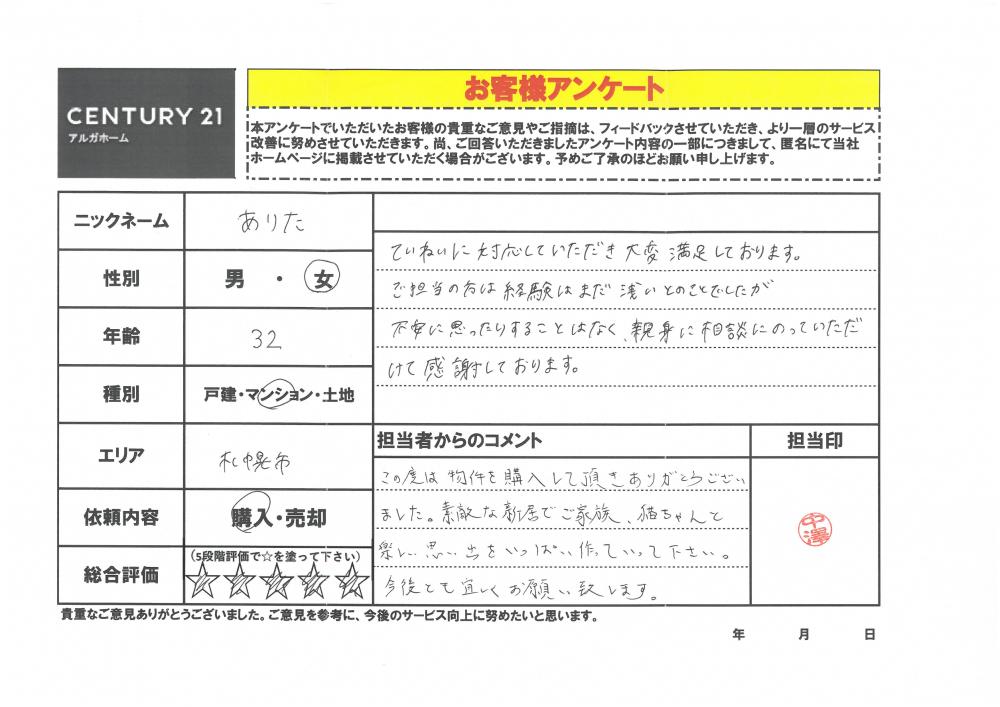 CENTURY 21
アルガホーム
お客様アンケート
本アンケートでいただいたお客様の貴重なご意見やご指摘は、フィードバックさせていただき、より一層のサービス
改善に努めさせていただきます。尚、ご回答いただきましたアンケート内容の一部につきまして、匿名にて当社
ホームページに掲載させていただく場合がございます。予めご了承のほどお願い申し上げます。
ニックネーム
ありた
性別
男 ・ 女
年齢
32
種別
戸建・マンション・土地
エリア
札幌市
依頼内容
購入・売却
総合評価
(5段階評価で☆を塗って下さい)
☆☆☆☆☆
ていねいに対応していただき大変満足しております。
ご担当の方は経験はまだ浅いとのことでしたが
不安に思ったりすることはなく、親身に相談にのっていただ
けて感謝しております。
担当者からのコメント
この度は物件を購入して頂きありがとうござい
ました。素敵な新居でご家族、猫ちゃんと
楽しい思い出をいっぱい作っていって下さい。
今後とも宜しくお願い致します。
担当印
中澤
貴重なご意見ありがとうございました。ご意見を参考に、今後のサービス向上に努めたいと思います。
年 月 日